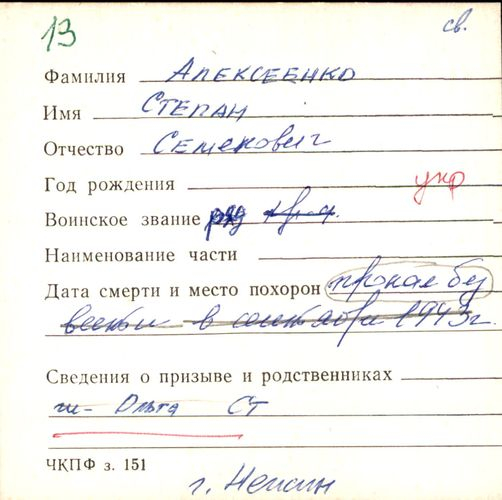 13 св.
Фамилия Алексеенко
Имя Степан
Отчество Семенович
Год рождения укр
Воинское звание ряд
Наименование части
Дата смерти и место похорон пропал без
вести в сентябре 1943г.
Сведения о призыве и родственниках
Ольга Ст
ЧКПФ з. 151
г. Нежин